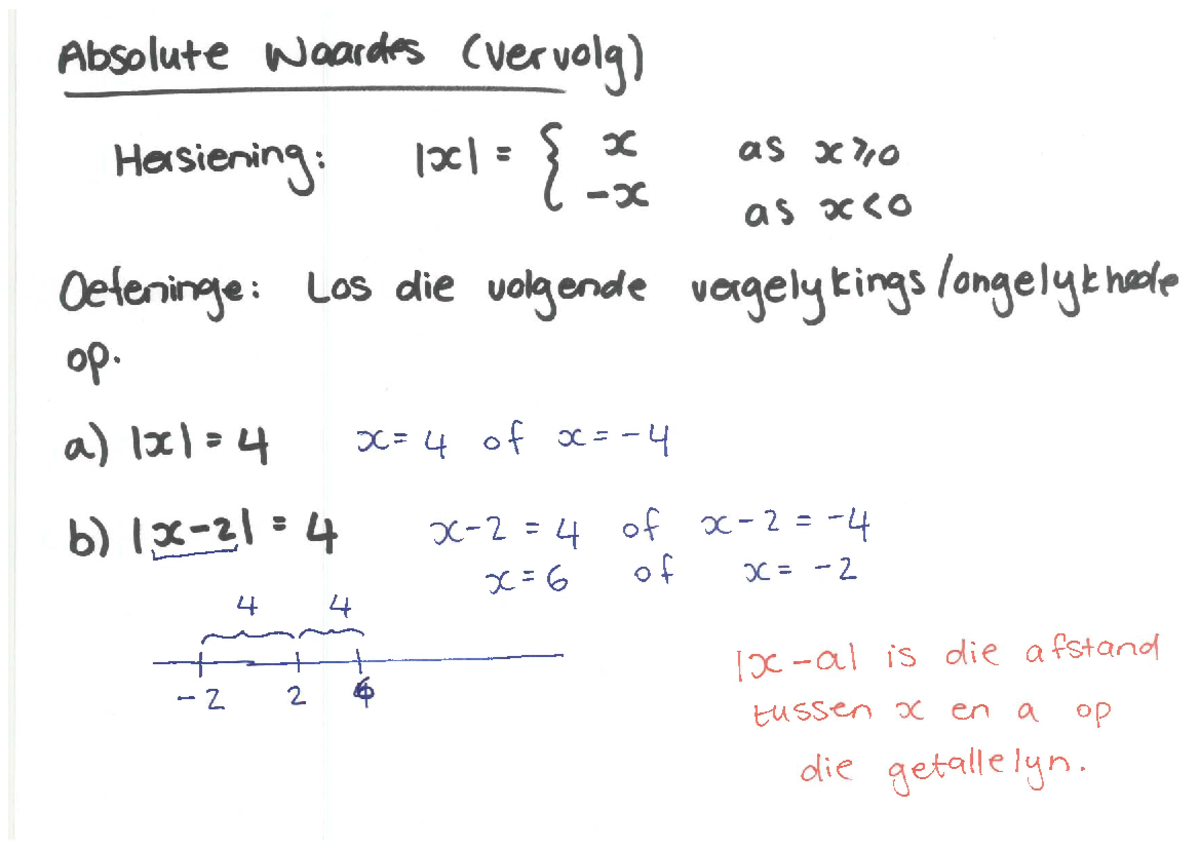 Absolute Waardes (vervolg)
Hersiening: |x| = { x as x ≥ 0
-x as x < 0
Oefeninge: Los die volgende vergelykings/ongelykhede
op.
a) |x| = 4 x = 4 of x = -4
b) |x-2| = 4 x-2 = 4 of x-2 = -4
x = 6 of x = -2
4 4
-2 2 6
|x-a| is die afstand
tussen x en a op
die getallelyn.